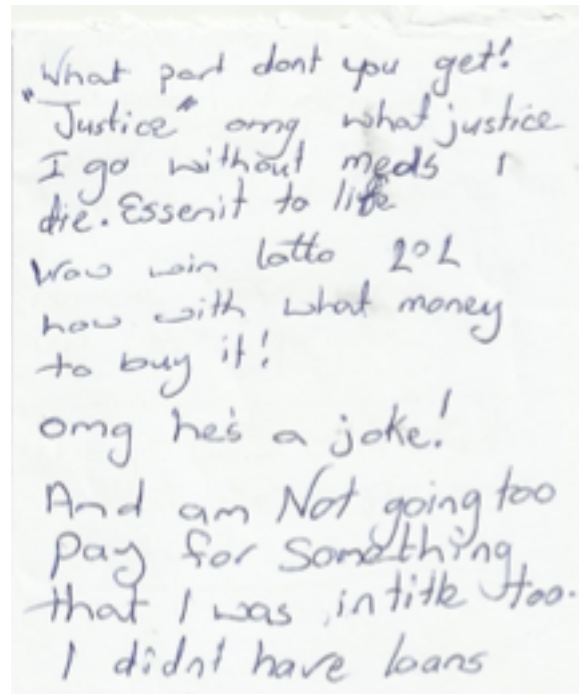 What part dont you get!
"Justice" omg what justice
I go without meds I
die. Essenit to life
Wow win lotto LOL
how with what money
to buy it!
omg he's a joke!
And am Not going too
Pay for Something
that I was intitle too.
I didnt have loans